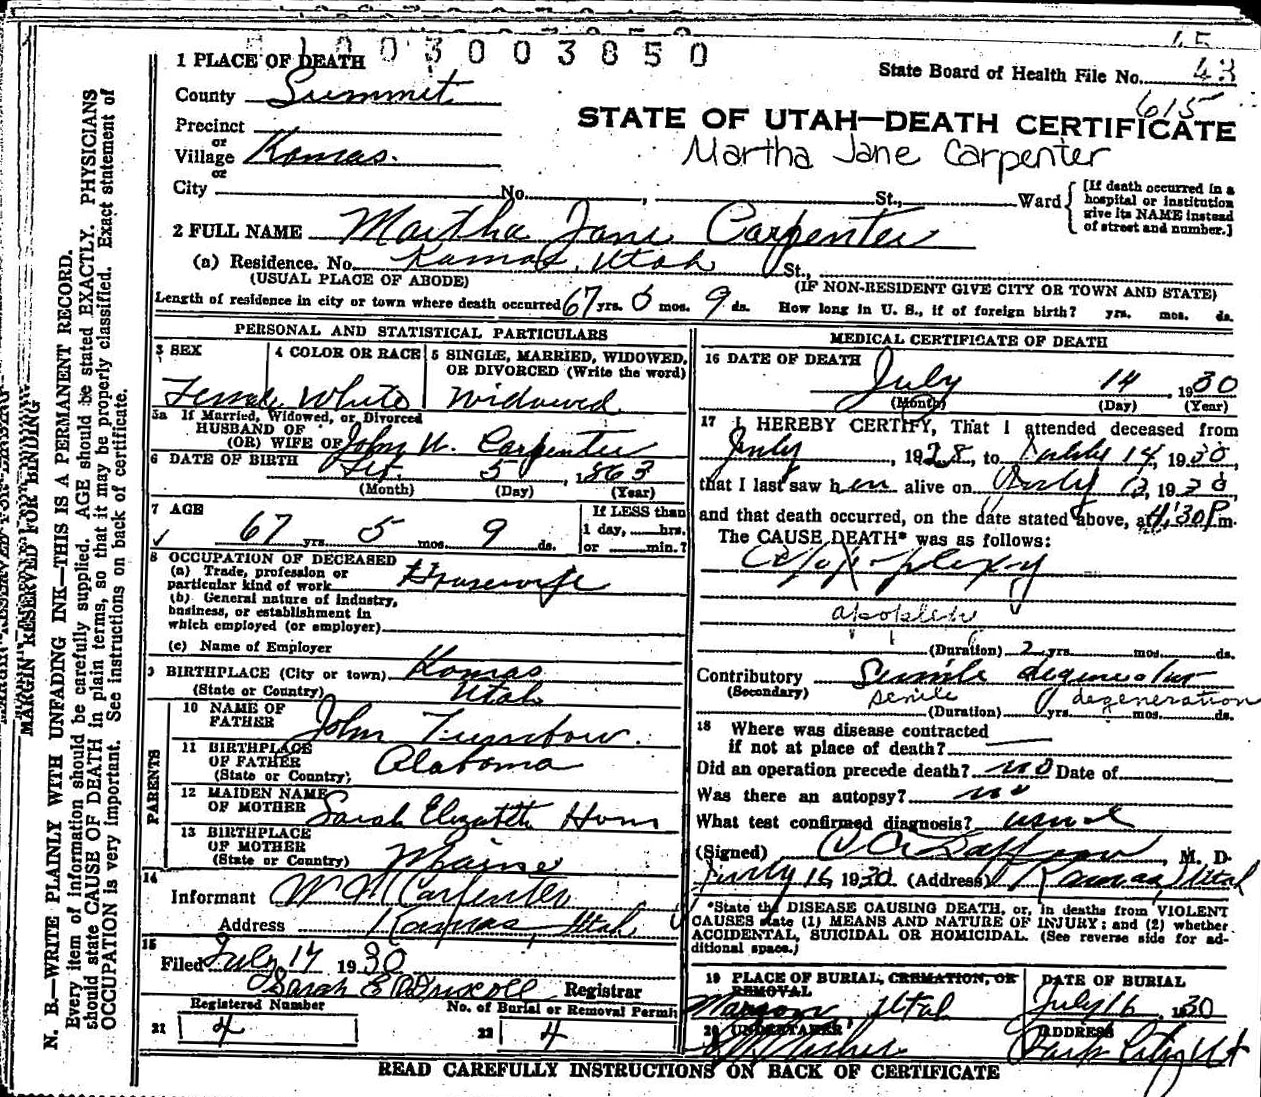 1003003850
1 PLACE OF DEATH
State Board of Health File No. 43
County Summit
615
Precinct
STATE OF UTAH—DEATH CERTIFICATE
or
Village Kamas.
Martha Jane Carpenter
or
City No. , St., Ward
[If death occurred in a
hospital or institution
give its NAME instead
of street and number.]
2 FULL NAME Martha Jane Carpenter
(a) Residence. No. Kamas, Utah St.,
(USUAL PLACE OF ABODE) (IF NON-RESIDENT GIVE CITY OR TOWN AND STATE)
Length of residence in city or town where death occurred 67 yrs. 5 mos. 9 ds. How long in U. S., if of foreign birth? yrs. mos. ds.
PERSONAL AND STATISTICAL PARTICULARS
3 SEX 4 COLOR OR RACE 5 SINGLE, MARRIED, WIDOWED,
OR DIVORCED (Write the word)
Female White Widowed
5a If Married, Widowed, or Divorced
HUSBAND OF
(OR) WIFE OF John W. Carpenter
6 DATE OF BIRTH 5, 1863
(Month) (Day) (Year)
7 AGE If LESS than
67 yrs. 5 mos. 9 ds. 1 day, hrs.
or min.?
8 OCCUPATION OF DECEASED
(a) Trade, profession or
particular kind of work Housewife
(b) General nature of industry,
business, or establishment in
which employed (or employer)
(c) Name of Employer
9 BIRTHPLACE (City or town) Kamas
(State or Country) Utah
PARENTS
10 NAME OF
FATHER John
11 BIRTHPLACE
OF FATHER Alabama
(State or Country)
12 MAIDEN NAME
OF MOTHER Sarah Elizabeth
13 BIRTHPLACE
OF MOTHER
(State or Country) Maine
14
Informant W M Carpenter
Address Kamas, Utah
15
Filed July 17 1930
Sarah E Driscoll Registrar
Registered Number No. of Burial or Removal Permit
21 4 22 4
MEDICAL CERTIFICATE OF DEATH
16 DATE OF DEATH
July 14, 1930
(Month) (Day) (Year)
17 I HEREBY CERTIFY, That I attended deceased from
July, 1928, to July 14, 1930,
that I last saw her alive on July 13, 1930,
and that death occurred, on the date stated above, at 4:30 P m.
The CAUSE DEATH* was as follows:
Apoplexy
apoplexy
(Duration) 2 yrs. mos. ds.
Contributory Senile degeneration
(Secondary) senile degeneration
(Duration) yrs. mos. ds.
18 Where was disease contracted
if not at place of death?
Did an operation precede death? no Date of
Was there an autopsy? no
What test confirmed diagnosis? usual
(Signed) , M. D.
July 16, 1930. (Address) Kamas, Utah
*State the DISEASE CAUSING DEATH, or, in deaths from VIOLENT
CAUSES state (1) MEANS AND NATURE OF INJURY; and (2) whether
ACCIDENTAL, SUICIDAL OR HOMICIDAL. (See reverse side for ad-
ditional space.)
19 PLACE OF BURIAL, CREMATION, OR
REMOVAL DATE OF BURIAL
Marion, Utah July 16 1930
20 UNDERTAKER ADDRESS
Park City Ut
READ CAREFULLY INSTRUCTIONS ON BACK OF CERTIFICATE
MARGIN RESERVED FOR BINDING
N. B.—WRITE PLAINLY WITH UNFADING INK—THIS IS A PERMANENT RECORD.
Every item of information should be carefully supplied. AGE should be stated EXACTLY. PHYSICIANS
should state CAUSE OF DEATH in plain terms, so that it may be properly classified. Exact statement of
OCCUPATION is very important. See instructions on back of certificate.